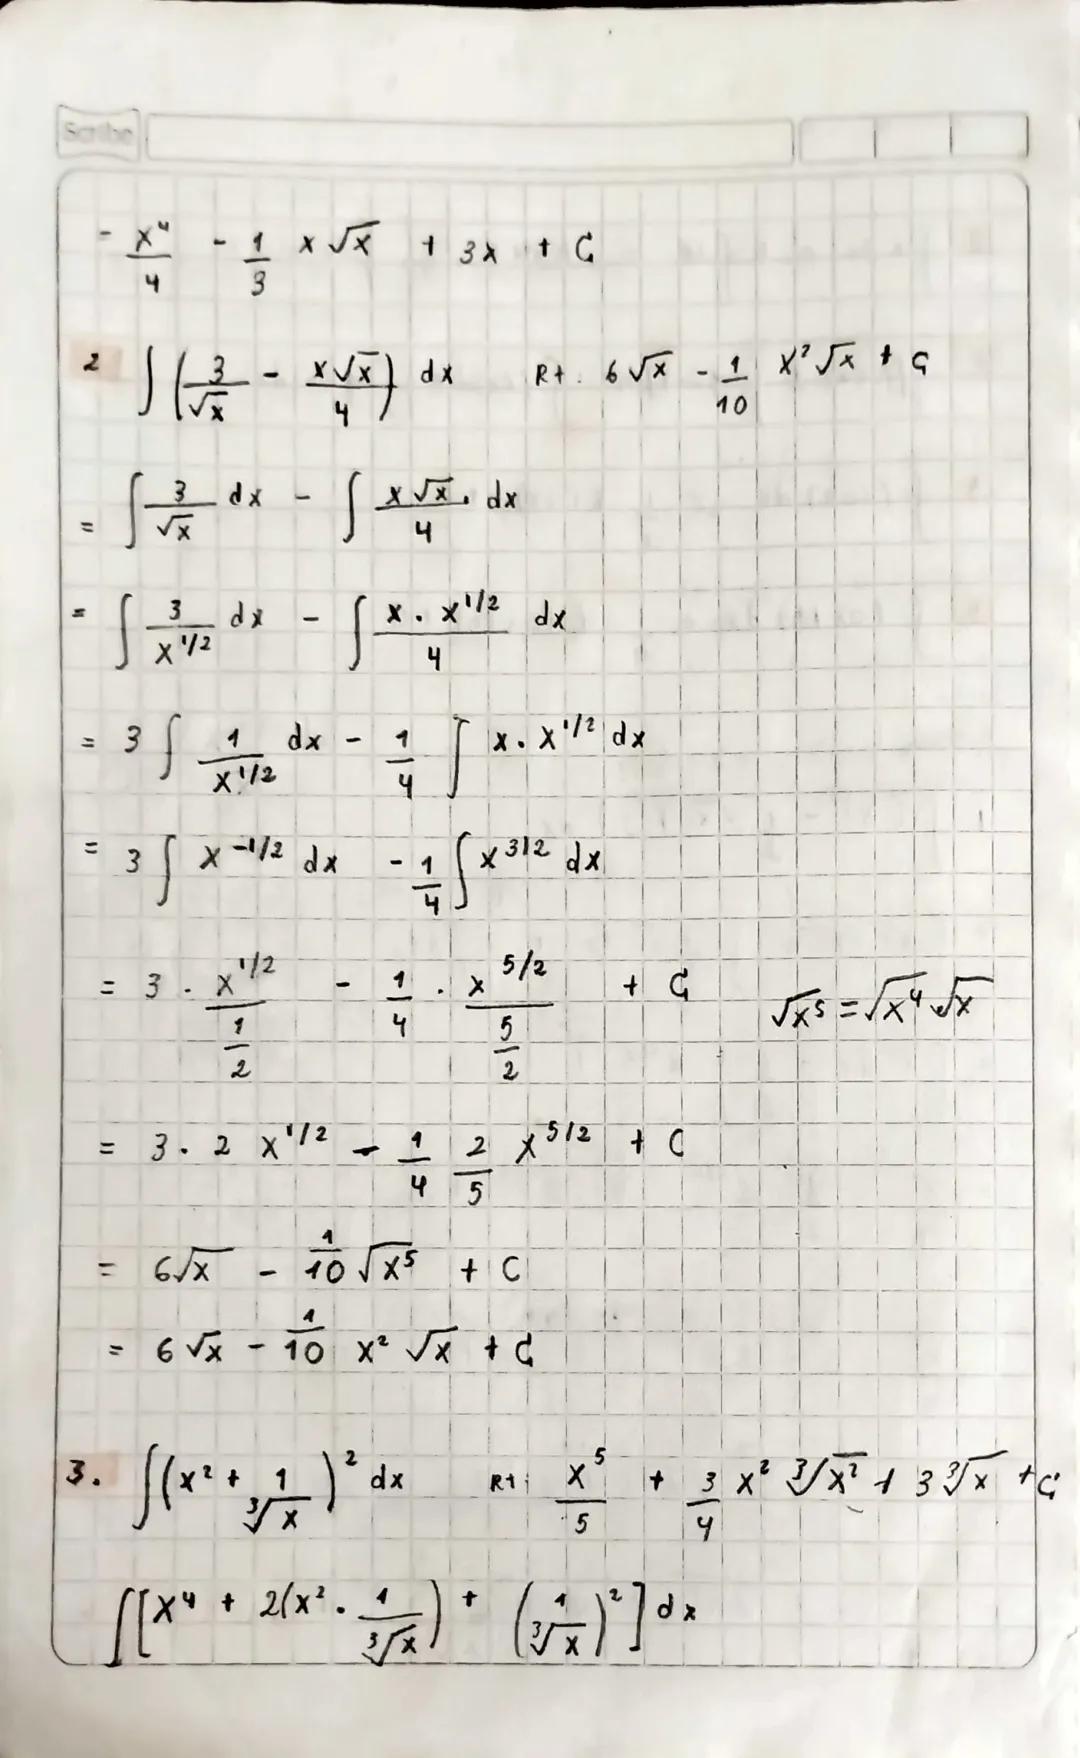 Scribe
- x⁴/4 - 1/3 x√x + 3x + C
2 ∫(3/√x - x√x/4) dx Rt. 6√x - 1/10 x²√x + C
= ∫ 3/√x dx - ∫ x√x/4 . dx
= ∫ 3/x^1/2 dx - ∫ x . x^1/2/4 dx
= 3 ∫ 1/x^1/2 dx - 1/4 ∫ x . x^1/2 dx
= 3 ∫ x^-1/2 dx - 1/4 ∫ x^3/2 dx
= 3 . x^1/2/(1/2) - 1/4 . x^5/2/(5/2) + C √x⁵ = √x⁴ √x
= 3 . 2 x^1/2 - 1/4 2/5 x^5/2 + C
= 6√x - 1/10 √x⁵ + C
= 6√x - 1/10 x² √x + C
3. ∫(x² + 1/∛x)² dx Rt: x⁵/5 + 3/4 x² ∛x² + 3∛x + C
∫[x⁴ + 2(x² . 1/∛x) + (1/∛x)²] dx